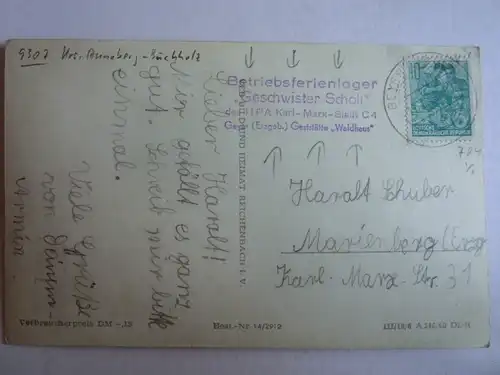 9307 Krs. Annaberg-Buchholz
Lieber Haralt!
Mir gefällt es ganz
gut. Schreib mir bitte
einmal.
Viele Grüße
von
Armin.
Betriebsferienlager
„Geschwister Scholl“
Karl-Marx-Stadt C 4
Geyer (Erzgeb.) Gaststätte „Waldhaus“
10
DEUTSCHE
DEMOKRATISCHE REPUBLIK
BILD UND HEIMAT REICHENBACH i. V.
Haralt Schuber
Marienberg (Erzg
Karl-Marx-Str. 31
Verbraucherpreis DM -,15
Best.-Nr. 14/2912